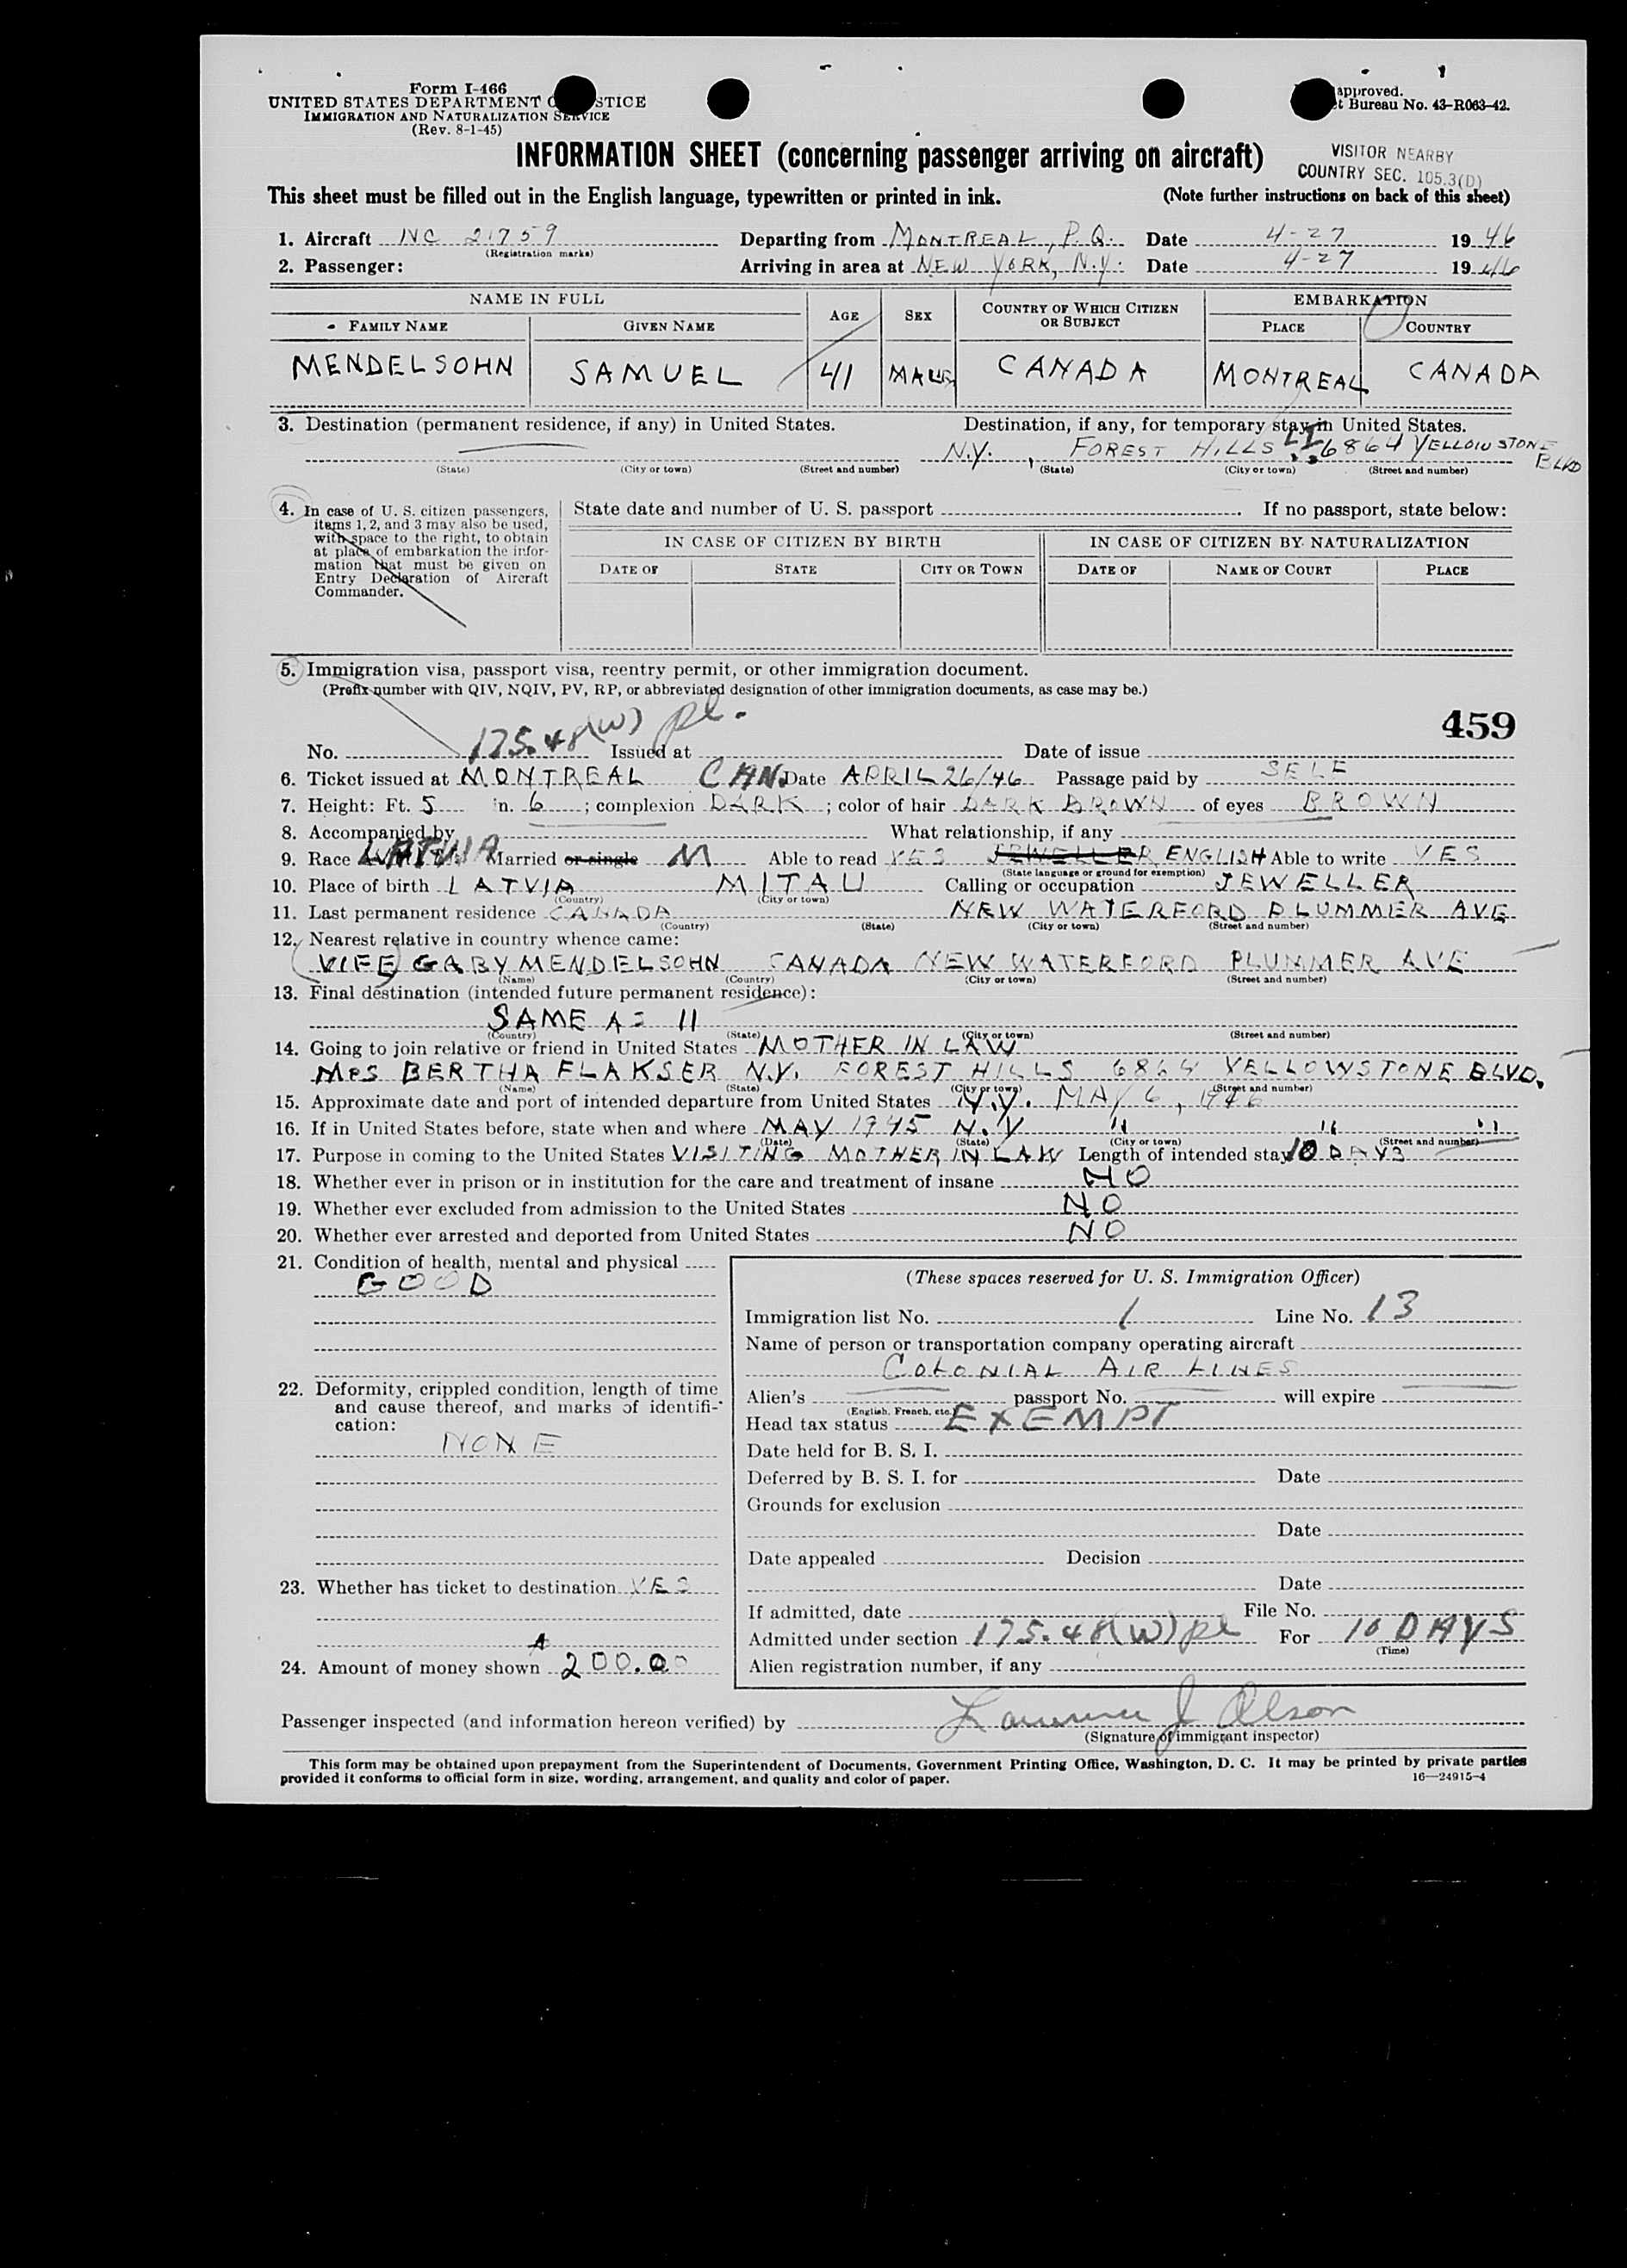 Form I-466
UNITED STATES DEPARTMENT O STICE
IMMIGRATION AND NATURALIZATION SERVICE
(Rev. 8-1-45)
approved.
t Bureau No. 43-R063-42.
INFORMATION SHEET (concerning passenger arriving on aircraft)
VISITOR NEARBY
COUNTRY SEC. 105.3(D)
This sheet must be filled out in the English language, typewritten or printed in ink. (Note further instructions on back of this sheet)
1. Aircraft NC 21759 Departing from MONTREAL, P.Q. Date 4-27 1946
(Registration marks)
2. Passenger: Arriving in area at NEW YORK, N.Y. Date 4-27 1946
NAME IN FULL AGE SEX COUNTRY OF WHICH CITIZEN OR SUBJECT EMBARKATION
FAMILY NAME GIVEN NAME PLACE COUNTRY
MENDELSOHN SAMUEL 41 MALE CANADA MONTREAL CANADA
3. Destination (permanent residence, if any) in United States. Destination, if any, for temporary stay in United States.
N.Y. FOREST HILLS L.I. 6864 YELLOWSTONE BLVD
(State) (City or town) (Street and number) (State) (City or town) (Street and number)
4. In case of U. S. citizen passengers, items 1, 2, and 3 may also be used, with space to the right, to obtain at place of embarkation the information that must be given on Entry Declaration of Aircraft Commander.
State date and number of U. S. passport If no passport, state below:
IN CASE OF CITIZEN BY BIRTH IN CASE OF CITIZEN BY NATURALIZATION
DATE OF STATE CITY OR TOWN DATE OF NAME OF COURT PLACE
5. Immigration visa, passport visa, reentry permit, or other immigration document.
(Prefix number with QIV, NQIV, PV, RP, or abbreviated designation of other immigration documents, as case may be.)
459
No. 175.48(W) pl. Issued at Date of issue
6. Ticket issued at MONTREAL CAN. Date APRIL 26/46 Passage paid by SELF
7. Height: Ft. 5 in. 6 ; complexion DARK ; color of hair DARK BROWN of eyes BROWN
8. Accompanied by What relationship, if any
9. Race LATVIA Married or single M Able to read YES JEWELLER ENGLISH Able to write YES
(State language or ground for exemption)
10. Place of birth LATVIA MITAU Calling or occupation JEWELLER
(Country) (City or town)
11. Last permanent residence CANADA NEW WATERFORD PLUMMER AVE
(Country) (State) (City or town) (Street and number)
12. Nearest relative in country whence came:
(VIFE) GABY MENDELSOHN CANADA NEW WATERFORD PLUMMER AVE
(Name) (Country) (City or town) (Street and number)
13. Final destination (intended future permanent residence):
SAME AS 11
(Country) (State) (City or town) (Street and number)
14. Going to join relative or friend in United States MOTHER IN LAW
MRS BERTHA FLAKSER N.Y. FOREST HILLS 6864 YELLOWSTONE BLVD.
(Name) (State) (City or town) (Street and number)
15. Approximate date and port of intended departure from United States N.Y. MAY 6, 1946
16. If in United States before, state when and where MAY 1945 N.Y " " "
(Date) (State) (City or town) (Street and number)
17. Purpose in coming to the United States VISITING MOTHER IN LAW Length of intended stay 10 DAYS
18. Whether ever in prison or in institution for the care and treatment of insane NO
19. Whether ever excluded from admission to the United States NO
20. Whether ever arrested and deported from United States NO
21. Condition of health, mental and physical
GOOD
22. Deformity, crippled condition, length of time and cause thereof, and marks of identification:
NONE
23. Whether has ticket to destination YES
24. Amount of money shown 200.00
(These spaces reserved for U. S. Immigration Officer)
Immigration list No. 1 Line No. 13
Name of person or transportation company operating aircraft
COLONIAL AIR LINES
Alien's passport No. will expire
(English, French, etc.)
Head tax status EXEMPT
Date held for B. S. I.
Deferred by B. S. I. for Date
Grounds for exclusion
Date
Date appealed Decision
Date
If admitted, date File No.
Admitted under section 175.48(W) pl For 10 DAYS
(Time)
Alien registration number, if any
Passenger inspected (and information hereon verified) by Lawrence J Olson
(Signature of immigrant inspector)
This form may be obtained upon prepayment from the Superintendent of Documents, Government Printing Office, Washington, D. C. It may be printed by private parties
provided it conforms to official form in size, wording, arrangement, and quality and color of paper. 16—24915-4